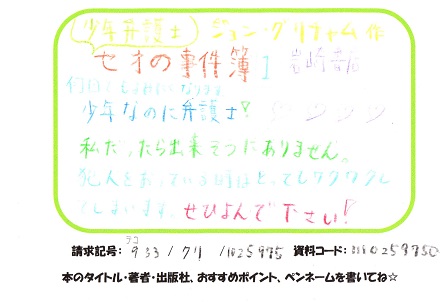 少年弁護士 ジョン・グリシャム作
セオの事件簿1 岩崎書店
何回でもよみたくなります
少年なのに弁護士!
私だったら出来そうにありません。
犯人をおっている時はとってもワクワクし
てしまいます。ぜひよんで下さい!
請求記号: 933 / グリ / 1025975 資料コード:
ラコ
本のタイトル・著者・出版社、おすすめポイント、ペンネームを書いてね☆